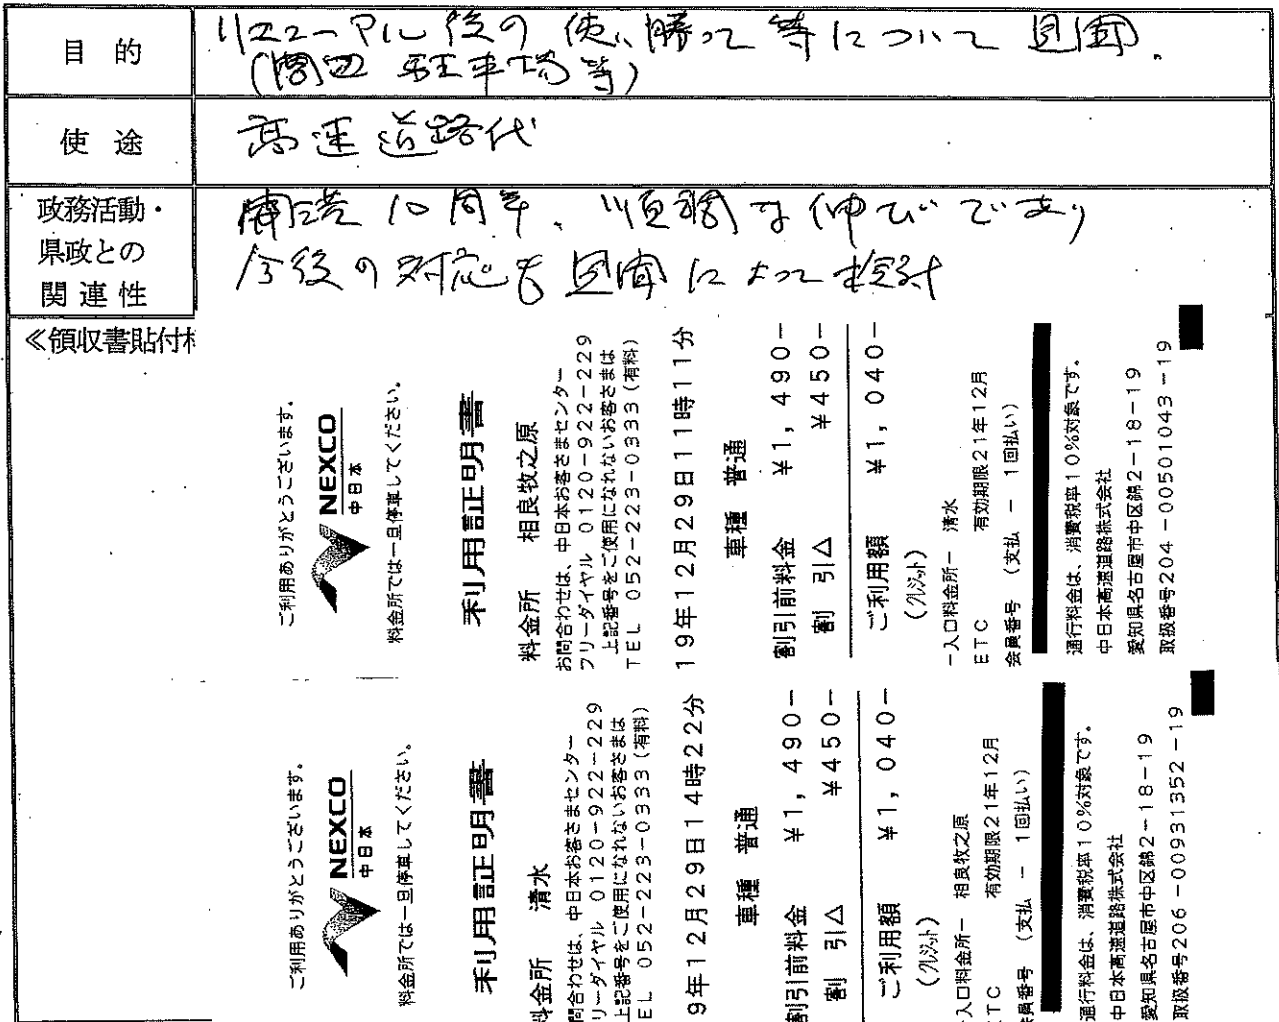 目的
リニューアル後の使い勝って等について見聞.
(周辺駐車場等)
使途
高速道路代
政務活動・
県政との
関連性
開港10周年、順調な伸びであり
今後の対応も見聞によって検討
≪領収書貼付
ご利用ありがとうございます。
NEXCO
中日本
料金所では一旦停車してください。
利用証明書
料金所 相良牧之原
お問合わせは、中日本お客さまセンター
フリーダイヤル 0120-922-229
上記番号をご使用になれないお客さまは
TEL 052-223-0333(有料)
19年12月29日11時11分
車種 普通
割引前料金 ¥1,490-
割引△ ¥450-
ご利用額 ¥1,040-
(クレジット)
-入口料金所- 清水
ETC 有効期限21年12月
会員番号 (支払 - 1回払い)
通行料金は、消費税率10%対象です。
中日本高速道路株式会社
愛知県名古屋市中区錦2-18-19
取扱番号204-00501043-19
ご利用ありがとうございます。
NEXCO
中日本
料金所では一旦停車してください。
利用証明書
料金所 清水
問合わせは、中日本お客さまセンター
リーダイヤル 0120-922-229
上記番号をご使用になれないお客さまは
EL 052-223-0333(有料)
9年12月29日14時22分
車種 普通
割引前料金 ¥1,490-
割引△ ¥450-
ご利用額 ¥1,040-
(クレジット)
-入口料金所- 相良牧之原
ETC 有効期限21年12月
会員番号 (支払 - 1回払い)
通行料金は、消費税率10%対象です。
中日本高速道路株式会社
愛知県名古屋市中区錦2-18-19
取扱番号206-00931352-19